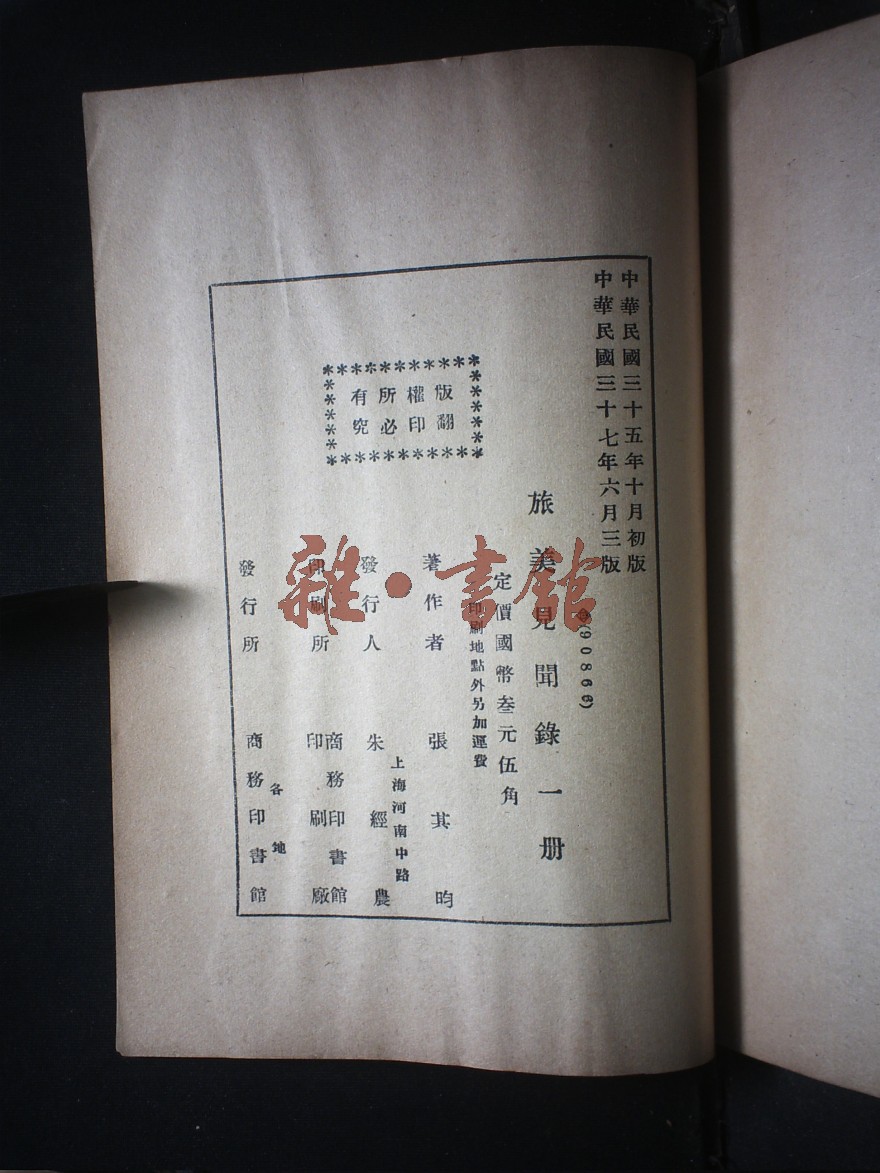 中華民國三十五年十月初版
中華民國三十七年六月三版
(90866)
旅美見聞錄一册
定價國幣叁元伍角
印刷地點外另加運費
版權所有
翻印必究
著作者 張其昀
上海河南中路
發行人 朱經農
印刷所 商務印書館
印刷廠
發行所 商務印書館
各地
雜·書館